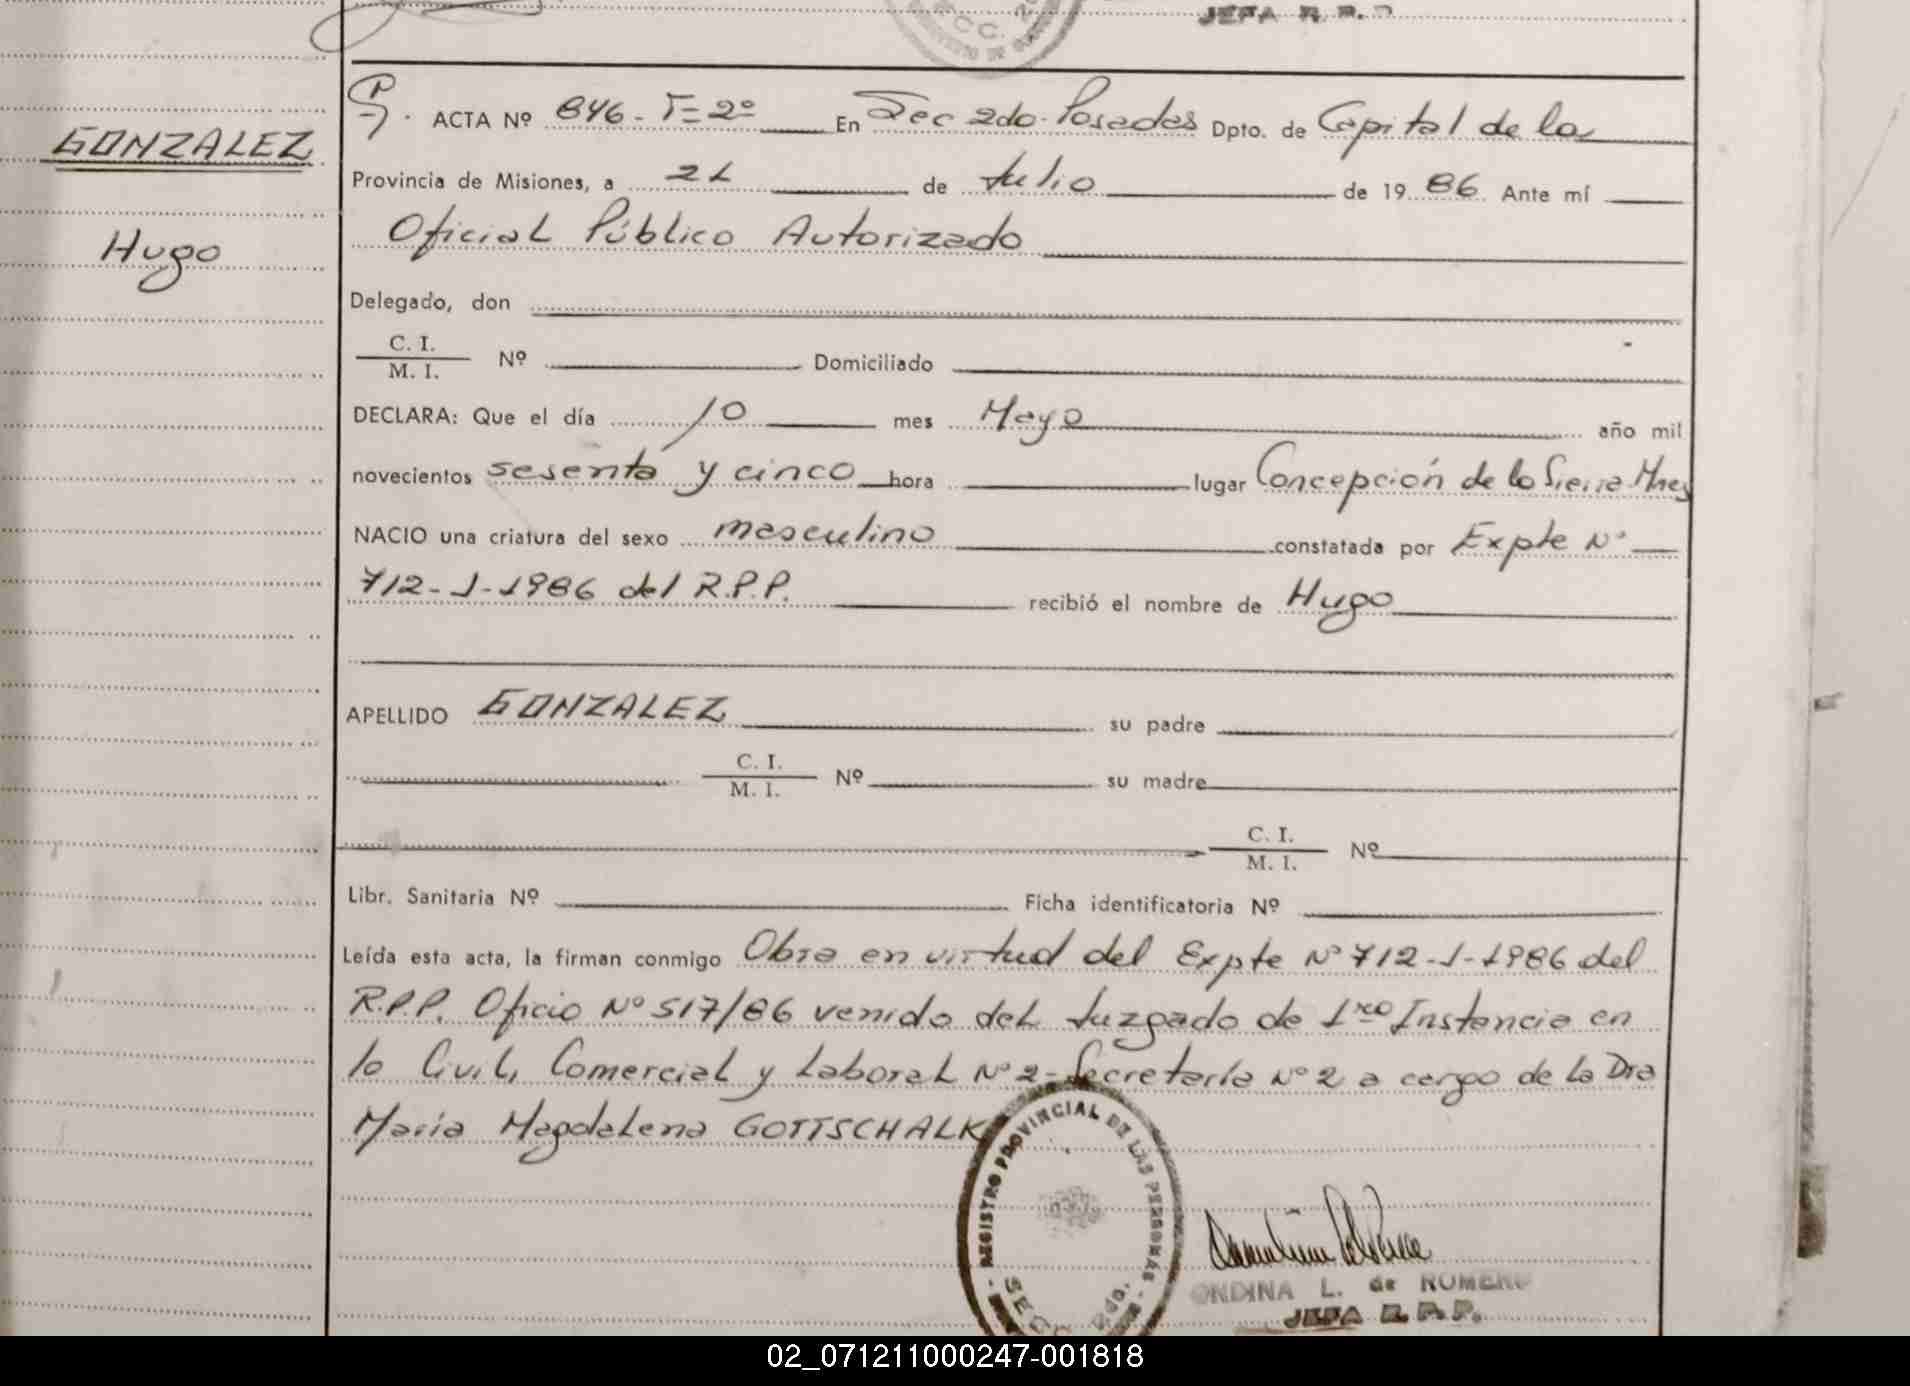 JEFA R.P.P
GONZALEZ
Hugo
ACTA Nº 846 - T=2º En Sec 2do. Posadas Dpto. de Capital de la
Provincia de Misiones, a 21 de Julio de 1986. Ante mí
Oficial Público Autorizado
Delegado, don
C. I.
M. I. Nº Domiciliado
DECLARA: Que el día 10 mes Mayo año mil
novecientos sesenta y cinco hora lugar Concepción de la Sierra Mnes
NACIO una criatura del sexo masculino constatada por Expte Nº
712-J-1986 del R.P.P. recibió el nombre de Hugo
APELLIDO GONZALEZ su padre
C. I.
M. I. Nº su madre
C. I.
M. I. Nº
Libr. Sanitaria Nº Ficha identificatoria Nº
Leída esta acta, la firman conmigo Obra en virtud del Expte Nº 712-J-1986 del
R.P.P. Oficio Nº 517/86 venido del Juzgado de 1ra Instancia en
lo Civil, Comercial y Laboral Nº 2 - Secretaría Nº 2 a cargo de la Dra
María Magdalena GOTTSCHALK
REGISTRO PROVINCIAL DE LAS PERSONAS
SECC. 2do.
ONDINA L. de ROMERO
JEFA R.P.P.
02_071211000247-001818